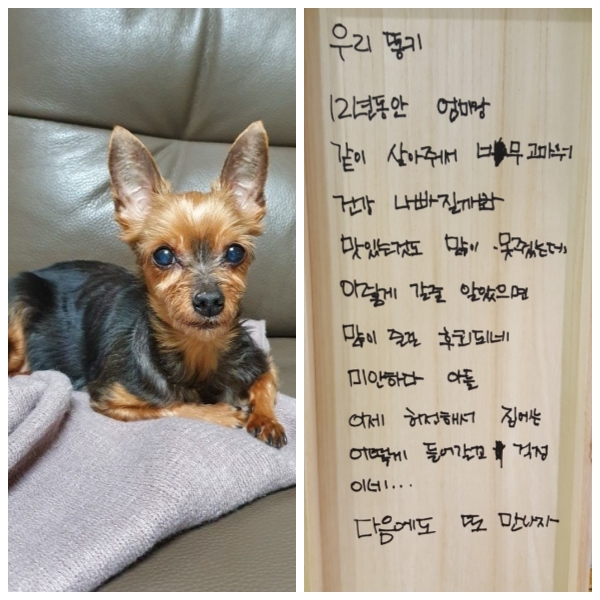 우리 똥기
12년동안 엄마랑
같이 살아주서 너무 고마워
건강 나빠질까봐
맛있는것도 많이 못줬는데
이렇게 갈줄 알았으면
많이 줄껄 후회되네
미안하다 아들
이제 허전해서 집에는
어떻게 들어갈고 걱정
이네...
다음에도 또 만나자